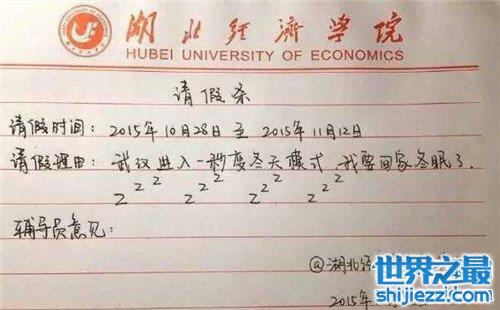 湖北经济学院
HUBEI UNIVERSITY OF ECONOMICS
请假条
请假时间：2015年10月28日 至 2015年11月12日
请假理由：武汉进入一秒变冬天模式，我要回家冬眠了.
z z z z z z z z z z z z
辅导员意见：
@湖北经
2015年
世界之最
shijiezz.com